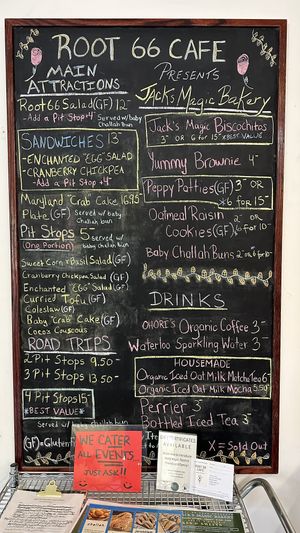 ROOT 66 CAFE
MAIN
ATTRACTIONS
Root66 Salad(GF) 12-
-Add a Pit Stop +4
Served w/ baby
challah bun
SANDWICHES 13-
-ENCHANTED "EGG" SALAD
-CRANBERRY CHICKPEA
-Add a Pit Stop +4-
Maryland "Crab" Cake 16.95
Plate (GF) served w/ baby
challah bun
Pit Stops 5-
(One Portion)
served w/
baby challah bun
Sweet Corn & Basil Salad (GF)
Cranberry Chickpea Salad (GF)
Enchanted "EGG" Salad (GF)
Curried Tofu (GF)
Coleslaw (GF)
Baby "Crab" Cake (GF)
Cocos Couscous
ROAD TRIPS
2 Pit Stops 9.50-
3 Pit Stops 13.50-
4 Pit Stops 15-
*BEST VALUE*
Served w/ baby challah bun
(GF)=Gluten
PRESENTS
Jack's Magic Bakery
Jack's Magic Biscochitos
3- OR 6 for 15- *BEST VALUE
Yummy Brownie 4-
Peppy Patties (GF) 3- OR
*6 for 15-
Oatmeal Raisin 2- OR
Cookies (GF) 6 for 10-
Baby Challah Buns 2- or 6 for 10-
DRINKS
OHORE'S Organic Coffee 3-
Waterloo Sparkling Water 3-
HOUSEMADE
Organic Iced Oat Milk Matcha Tea 6-
Organic Iced Oat Milk Mocha 5.50-
Perrier 3-
Bottled Iced Tea 3-
X = Sold Out
WE CATER
ALL EVENTS
JUST ASK!!
GIFT CERTIFICATES
AVAILABLE
challah